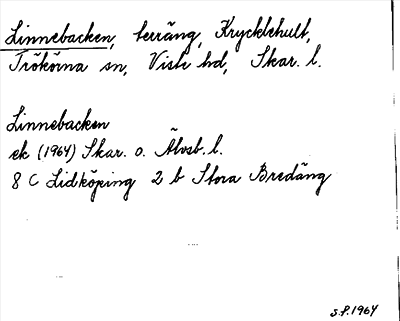 Linnebacken, terräng, Krycklehult,
Trökörna sn, Viste hd, Skar. l.
Linnebacken
ek (1964) Skar. o. Älvsb. l.
8 C Lidköping 2 b Stora Bredäng
S.F. 1964